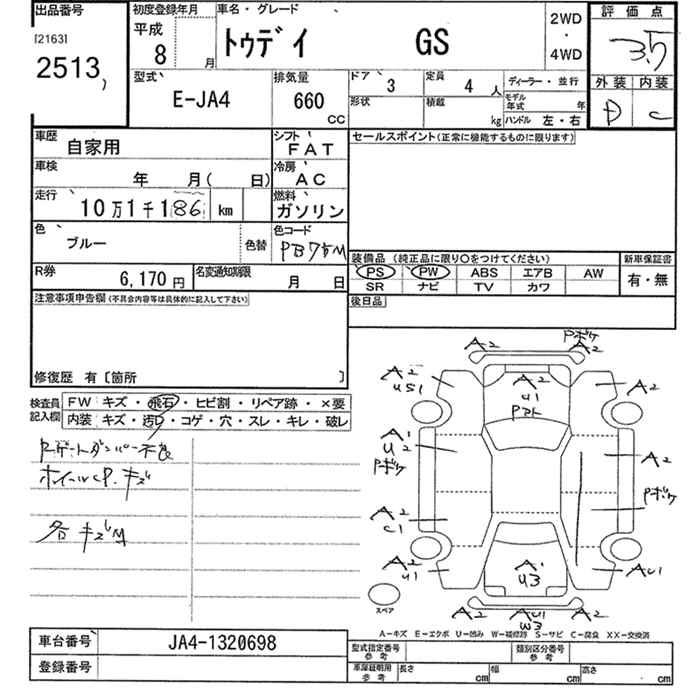 出品番号 初度登録年月 車名・グレード 2WD・4WD 評価点
[2163] 平成 トゥデイ GS 3.5
2513 8 月
型式 排気量 ドア 3 定員 4 人 ディーラー・並行 外装 内装
E-JA4 660 cc 形状 積載 kg モデル年式 年 ハンドル 左・右 D C
車歴 自家用 シフト FAT セールスポイント(正常に機能するものに限ります)
車検 年 月( 日) 冷房 AC
走行 10万1千186 km 燃料 ガソリン
色 ブルー 色替 色コード PB75M
装備品 (純正品に限り○をつけてください) 新車保証書
R券 6,170円 名変通知期限 月 日 PS PW ABS エアB AW 有・無
SR ナビ TV カワ
注意事項申告欄(不具合内容等は具体的に記入して下さい) 後日品
修復歴 有〔箇所 〕
検査員記入欄 FW キズ・飛石・ヒビ割・リペア跡・×要
内装 キズ・汚レ・コゲ・穴・スレ・キレ・破レ
Rゲートダンパー不良
ホイールCP.キズ
各キズM
A2 Pボケ A2
A2 US1 A2 U1 A2
A1 U2 Pボケ A2
Pボケ
A2 C1
A2 U1 A1 U3 AU1
スペア A2 AU1 W3 A2
A-キズ E-エクボ U-凹み W-補修跡 S-サビ C-腐食 XX-交換済
車台番号 JA4-1320698 型式指定番号 参考 類別区分番号 参考
登録番号 車庫証明用 参考 長さ cm 幅 cm 高さ cm